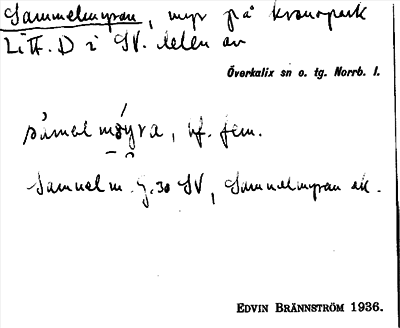 Sammelmyran, myr på kronopark
Litt. D i SV. delen av
Överkalix sn o. tg. Norrb. l.
sàmelmöyra, bf. fem.
Samuelm. G.30 SV, Sammelmyran ek.
EDVIN BRÄNNSTRÖM 1936.